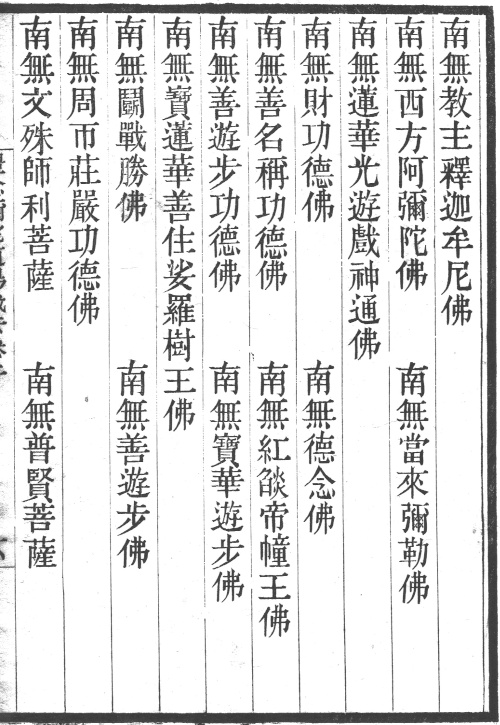 南無教主釋迦牟尼佛
南無西方阿彌陀佛　南無當來彌勒佛
南無蓮華光遊戲神通佛
南無財功德佛　南無德念佛
南無善名稱功德佛　南無紅燄帝幢王佛
南無善遊步功德佛　南無寶華遊步佛
南無寶蓮華善住娑羅樹王佛
南無鬭戰勝佛　南無善遊步佛
南無周帀莊嚴功德佛
南無文殊師利菩薩　南無普賢菩薩